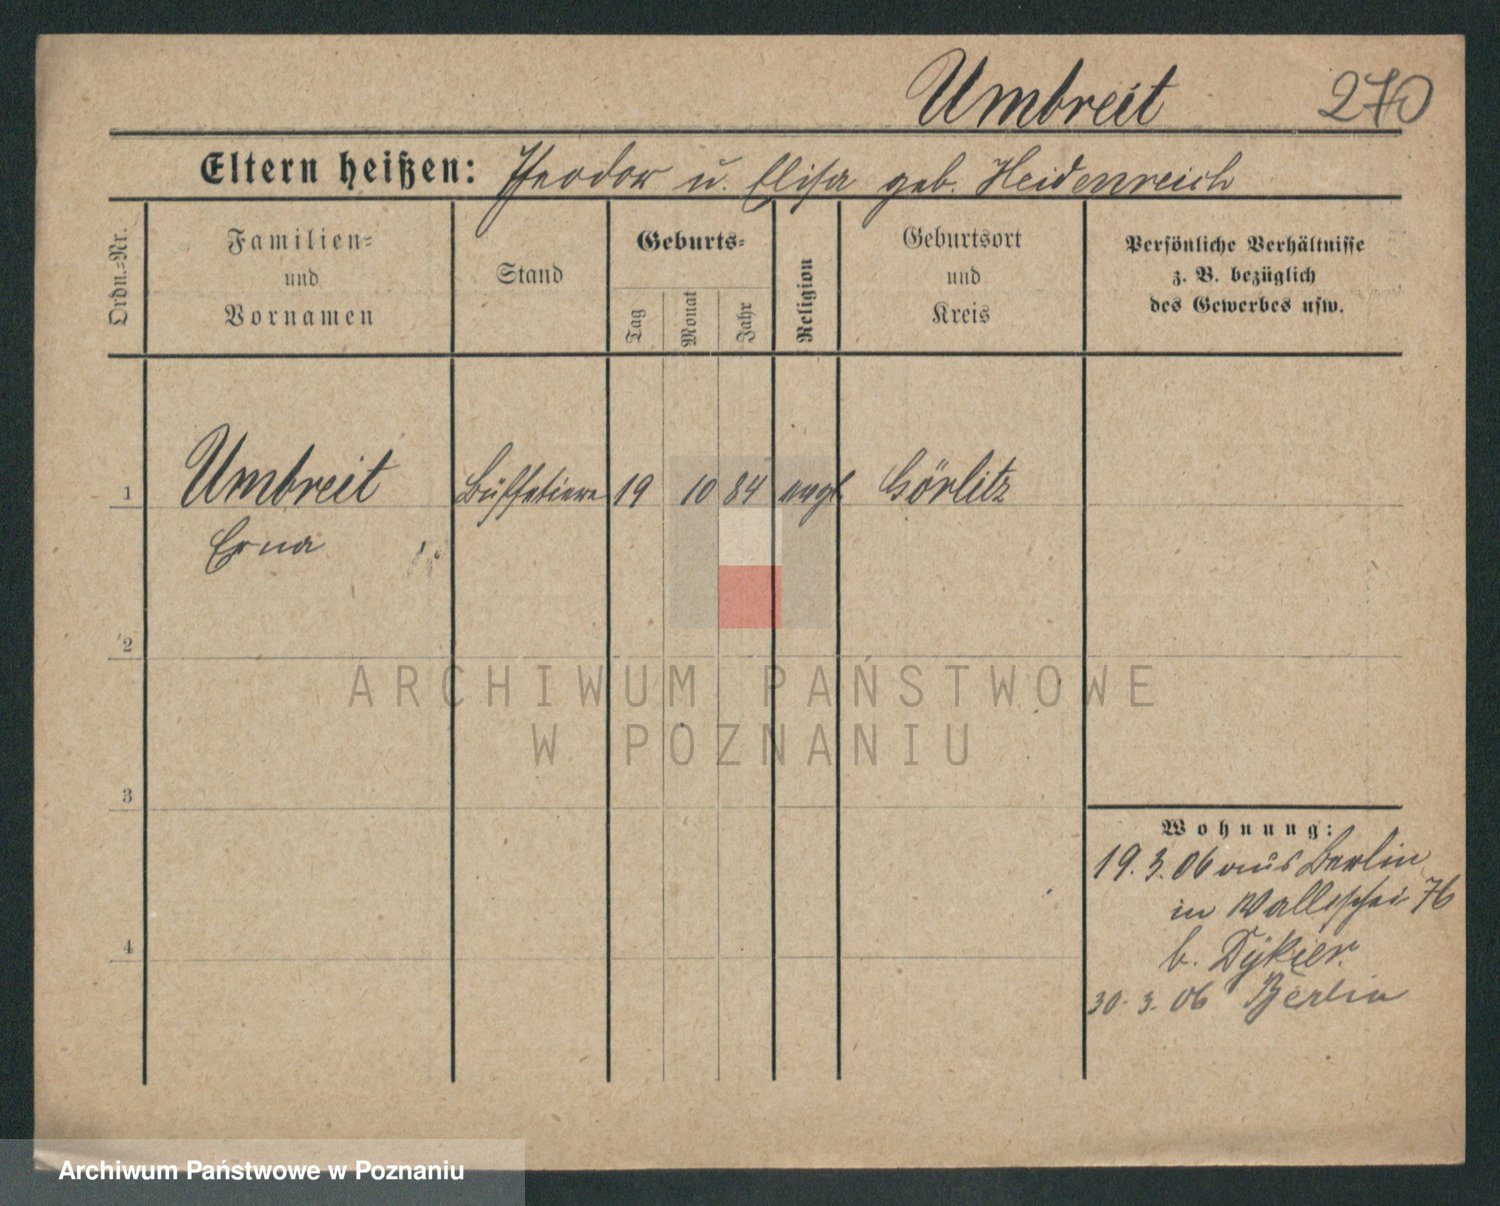 Umbreit 270
Eltern heißen: Theodor u. Elisa geb. Heidenreich
Ordn.=Nr.
Familien=
und
Vornamen
Stand
Geburts=
Tag
Monat
Jahr
Religion
Geburtsort
und
Kreis
Persönliche Verhältnisse
z. B. bezüglich
des Gewerbes usw.
1 Umbreit Büffetiere 19 10 84 evgl. Görlitz
Erna
2
3
4
Wohnung:
19. 3. 06 aus Berlin
in Wallischei 76
b. Dykier.
30. 3. 06 Berlin
ARCHIWUM PAŃSTWOWE
W POZNANIU
Archiwum Państwowe w Poznaniu